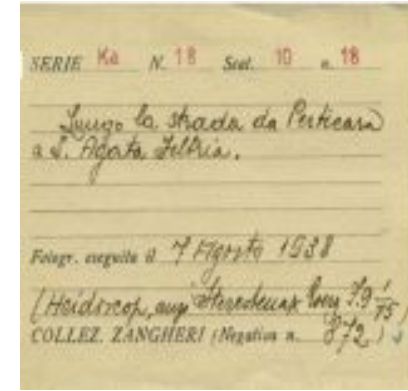 SERIE Ka N. 18 Scat. 10 n. 18
Lungo la strada da Perticara
a S. Agata Feltria.
Fotogr. eseguita il 7 Agosto 1938
(Heidoscop, 
COLLEZ. ZANGHERI (Negativa n. 872)